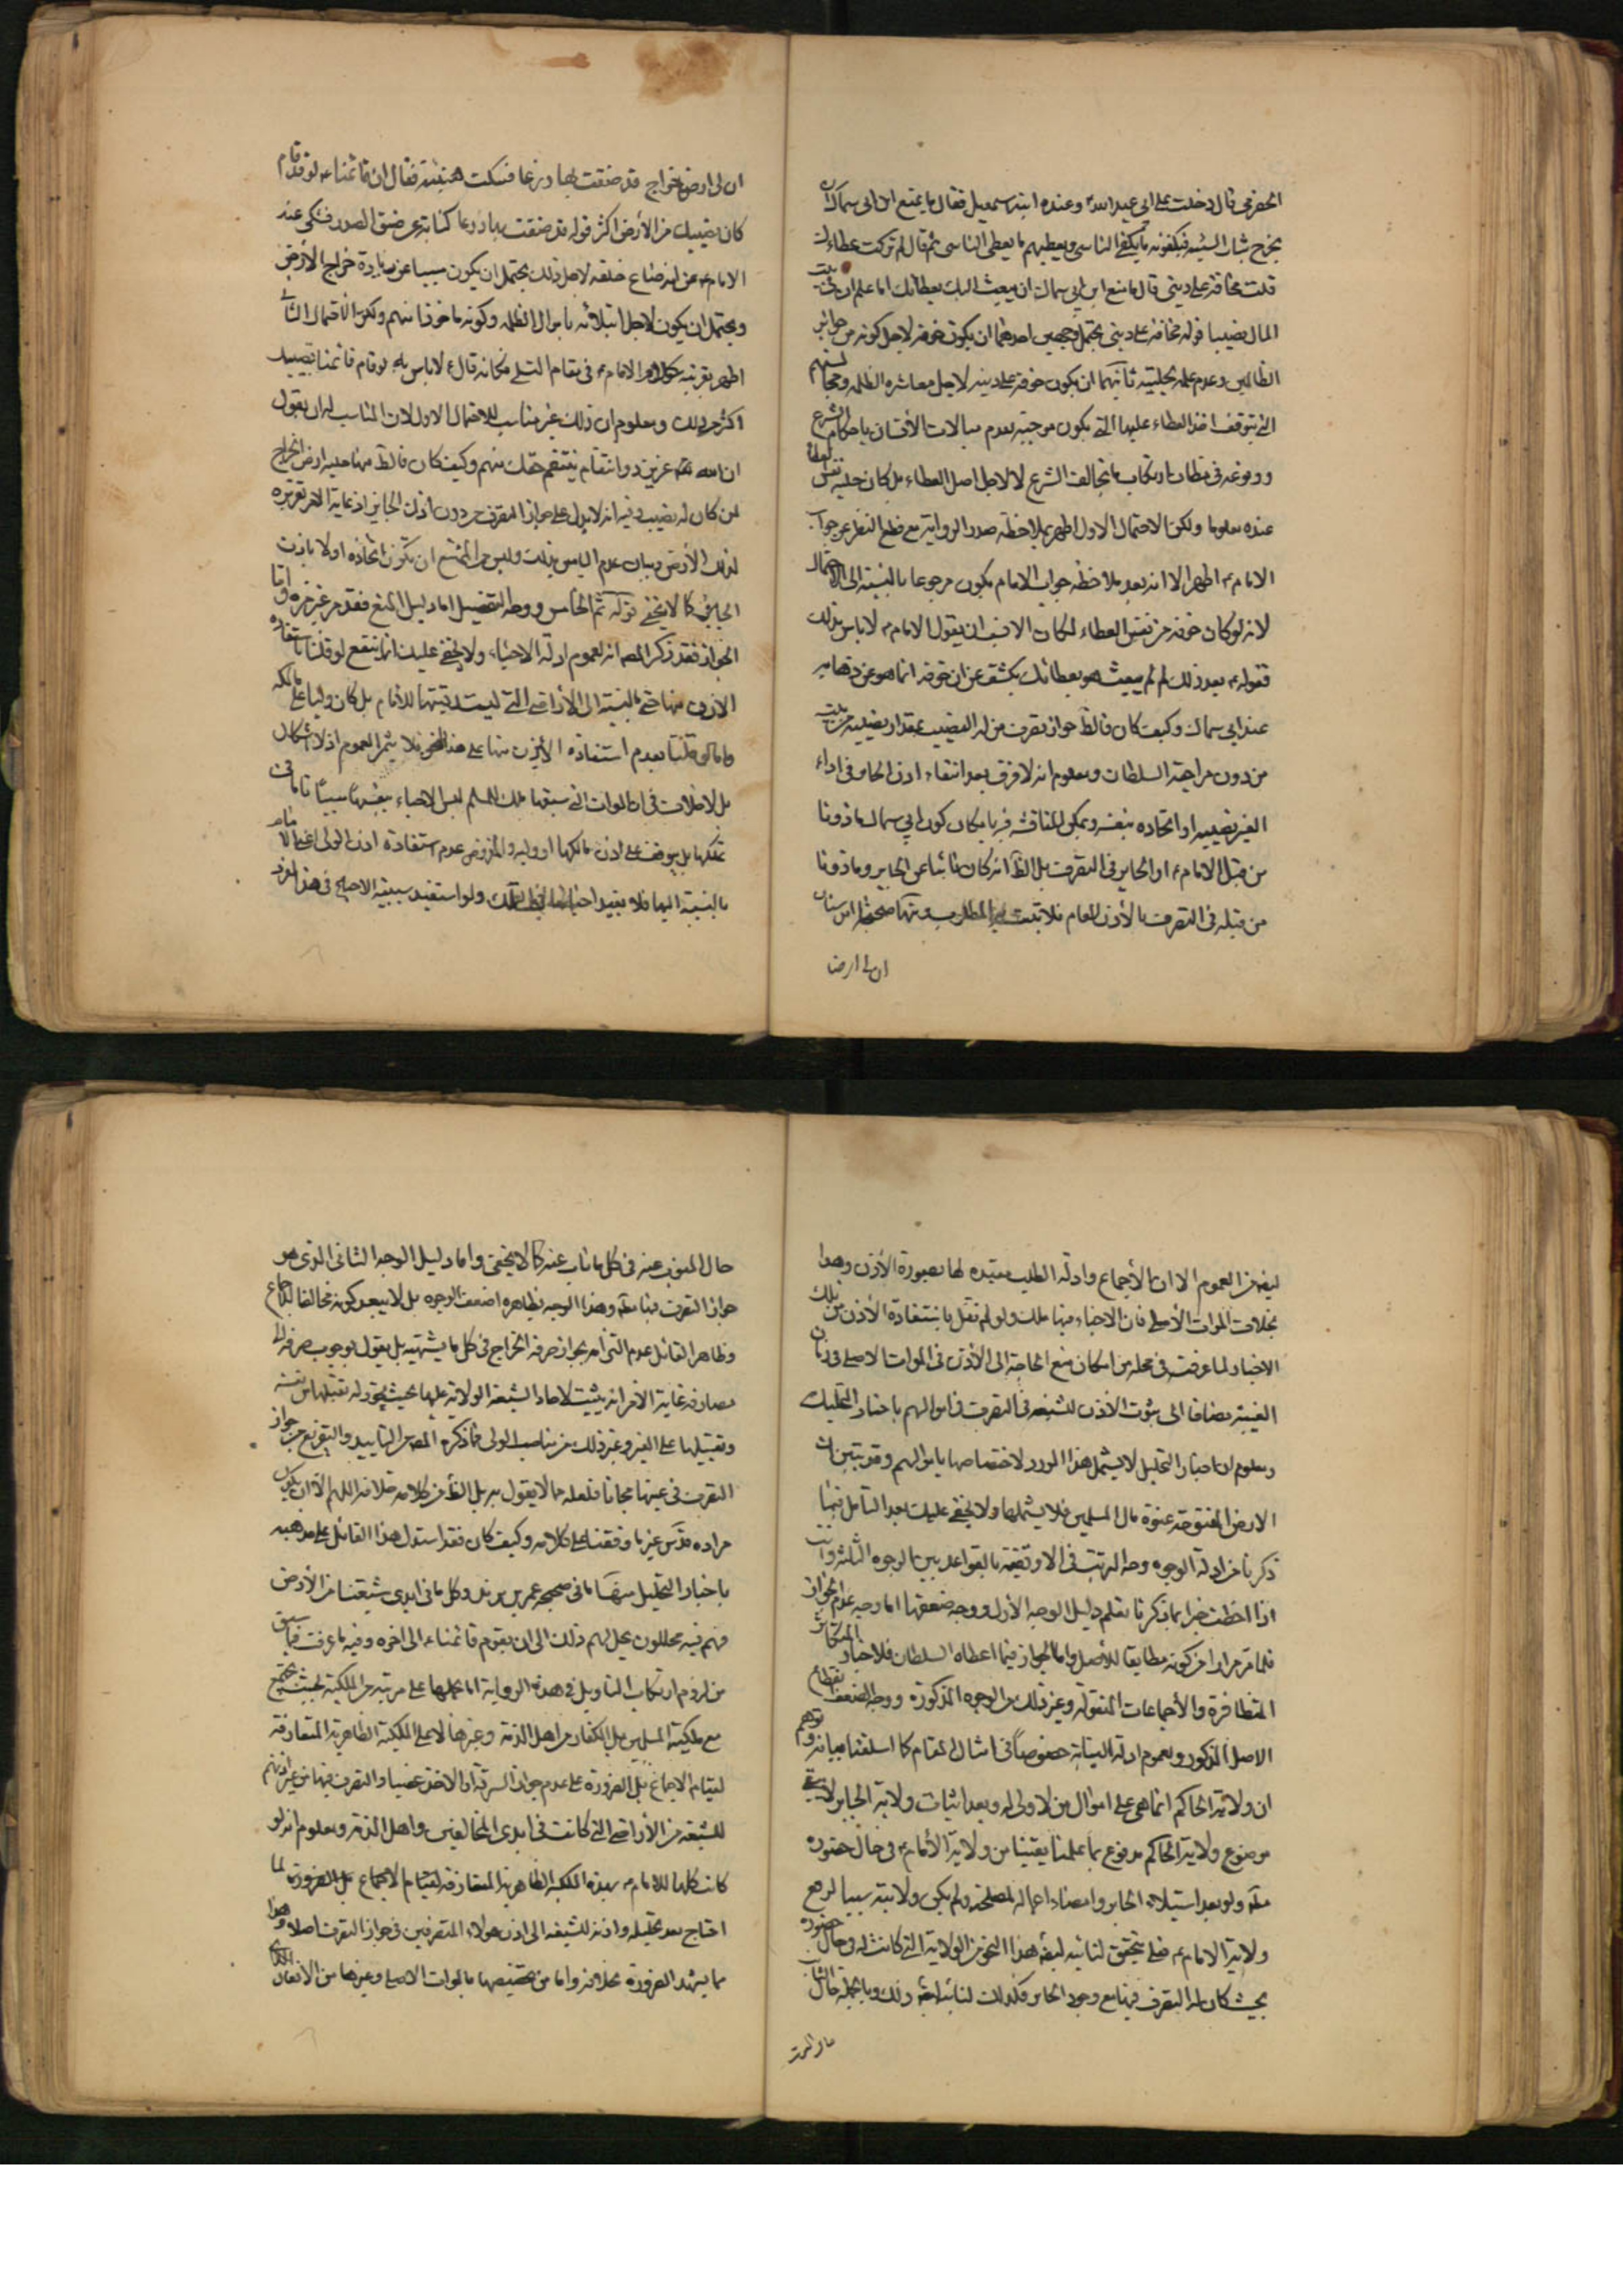 الحضرمي قال دخلت على ابي عبد الله ع وعنده ابنه اسمعيل فقال ما يمنع ابن ابي سماك ان
يخرج شباب الشيعة فيكفونه ما يكفيه الناس ويعطيهم ما يعطى الناس ثم قال لم تركت عطاءك
قلت مخافة على ديني قال ما منع ابن ابي سماك ان يبعث اليك بعطائك اما علم ان لك في بيت
المال نصيبا قوله مخافة على ديني يحتمل وجهين احدهما ان يكون خوفه لاجل كونه من جوائز
الظالمين وعدم علمه بحليته ثانيهما ان يكون خوفه على دينه لاجل معاشرة الظلمة ومجالستهم
التي يتوقف اخذ العطاء عليها التي يكون موجبة لعدم مبالات الأنسان باحكام الشرع
ووقوعه في مظان ارتكاب ما يخالف الشرع لا لاجل اصل العطاء بل كان حلية نفس العطاء
عنده معلوما ولكن الاحتمال الاول اظهر بملاحظة صدر الرواية مع قطع النظر عن جواب
الامام ع اظهر الا انه بعد ملاحظة جواب الامام يكون مرجوعا بالنسبة الى الاحتمال
لانه لو كان خوفه من نفس العطاء لكان الانسب ان يقول الامام ع لا باس بذلك
فقوله ع بعد ذلك لم لم يبعث هو بعطائك يكشف عن ان خوفه انما هو عن ذهابه
عند ابي سماك وكيف كان فالظ جواز تصرف من له النصيب بمقدار نصيبه من بيت
من دون مراجعة السلطان ومعلوم انه لا فرق بعد انتفاء اذن الحاكم في اداء
الغير نصيبه او اتخاذه بنفسه ويمكن المناقشة فيه بامكان كون ابي سماك ماذونا
من قبل الامام ع او الجاير في التصرف بل الظ انه كان نائبا عن الجاير وماذونا
من قبله في التصرف بالأذن العام فلا يثبت به المطلوب ومنها صحيحة ابن سنان
ان لى ارضا
ان لى ارض خراج وقد ضقت بها ذرعا فسكت هنيئة فقال ان قائمنا ع لو قد قام
كان نصيبك من الأرض اكثر قوله قد ضقت بها ذرعا كناية عن ضيق الصدر فشكى عند
الامام ع عن انه ضاع خلقه لاجل ذلك يحتمل ان يكون مسببا عن زيادة خراج الأرض
ويحتمل ان يكون لاجل ابتلائه باموال الظلمة وكونه ماخوذا منهم ولكن الاحتمال الثاني
اظهر بقرينة كلام الامام ع في مقام التسلي فكانه قال ع لا باس به لو قام قائمنا نصيبك
اكثر من ذلك ومعلوم ان ذلك غير مناسب للاحتمال الاول لان المناسب له ان يقول
ان الله عزيز ذو انتقام ينتقم حقك منهم وكيف كان فالظ منها حلية ارض الخراج
لمن كان له نصيب وفيه انه لا يدل على جواز التصرف من دون اذن الجاير اذ غاية الامر تقريره
لذلك الأرض وبيان عدم الباس بذلك وليس من الممتنع ان يكون اتخاذه اولا باذن
الجاير كما لا يخفى قوله ثم الخامس ووجه التفصيل اما دليل المنع فقد مر غير مرة واما
الجواز فقد ذكر المص انه لعموم ادلة الاحياء ولا يخفى عليك انما ينفع لو قلنا باستفادة
الاذن منها حتى بالنسبة الى الأراضي التي ليست رقبتها للامام بل كان وليا على مالكه
واما لو قلنا بعدم استفادة الأذن منها على هذا النحو فلا يثمر العموم اذ لا اشكال
بل لا خلاف في ان الموات التي سبقها ملك المسلم ليس الاحياء بنفسها سببا تاما في
تملكها بل يتوقف على اذن مالكها او وليه والمفروض عدم استفادة اذن الولى
بالنسبة اليها فلا يفيد احيائها التملك ولو استفيد سببية الاحياء في هذا المورد
ايضا من العموم الا ان الأجماع وادلة الطلب مقيدة لها بصورة الأذن وهذا
بخلاف الموات الأصلي فان الاحياء فيها ملك ولو لم نقل باستفادة الأذن من تلك
الاخبار لما عرفت في محله من امكان منع الحاجة الى الأذن في الموات الاصلي في زمان
الغيبة مضافا الى ثبوت الاذن للشيعة في التصرف في اموالهم باخبار التحليل
ومعلوم ان اخبار التحليل لا يشمل هذا المورد لاختصاصها باموالهم وقد تبين ان
الارض المفتوحة عنوة مال المسلمين فلا يشملها ولا يخفى عليك بعد التأمل فيما
ذكرنا من ادلة الوجوه وجه الترتب في الاوثقية بالقواعد بين الوجوه الثلثة وانت
اذا احطت خبرا بما ذكرنا تعلم دليل الوجه الأول ووجه ضعفها اما وجه عدم الجواز
فلما مر مرارا من كونه مطابقا للأصل واما الجواز فيما اعطاه السلطان فلاخبار المتكاثرة
المتظافرة والأجماعات المنقولة وغير ذلك من الوجوه المذكورة ووجه الضعف
الاصل المذكور وعموم ادلة النيابة خصوصا في امثال المقام كما اسلفنا بيانه وتوهم
ان ولاية الحاكم انما هي على اموال من لا ولى له وبعد اثبات ولاية الجاير لا يبقى
موضوع ولاية الحاكم مدفوع بما علمنا يقينا من ولاية الأمام ع في حال حضوره
ولو بعد استيلاء الجاير وامضاء اعماله لمصلحة ولم يكن ولايته سببا لرفع
ولاية الامام ع فلم يتحقق لنائبه ايضا هذا النحو من الولاية التي كانت له وحال حضوره
بحيث كان له التصرف فيها مع وجود الجاير فكذلك لنائبه ايضا ذلك وبالجملة حال النائب
حال المنوب عنه في كل ما ناب عنه كما لا يخفى واما دليل الوجه الثاني الذي هو
جواز التصرف فيها مط وهذا الوجه بظاهره اضعف الوجوه بل لا يبعد كونه مخالفا للاجماع
وظاهر القائل عدم التزامه بجواز صرفه الخراج في كل ما يشتهيه بل يقول بوجوب صرفه الى
مصارفه غاية الامر انه يثبت لاحاد الشيعة الولاية عليها بحيث يجوز له تقبلها من نفسه
وتقبيلها على الغير وغير ذلك من مناصب الولى فما ذكره المص من التاييد والتفريع من جواز
التصرف في عينها مجانا فلعله مما لا يقول به بل الظ من كلامه خلافه اللهم الا ان يكون
مراده قدس غير ما وقفنا على كلامه وكيف كان فقد استدل هذا القائل على مذهبه
باخبار التحليل منها ما في صحيحة عمر بن يزيد وكل ما في ايدي شيعتنا من الأرض
فهم فيه محللون يحل لهم ذلك الى ان يقوم قائمنا ع الى اخره وفيه ما عرفت فيما سبق
من لزوم ارتكاب التاويل في هذه الرواية اما بحملها على مرتبة من الملكية بحيث يجتمع
مع ملكية المسلمين بل الكفار من اهل الذمة وغيرها لا على الملكية الظاهرية المتعارفة
لقيام الاجماع بل الضرورة على عدم جواز السرقة او الاخذ غصبا والتصرف فيها من غير اذنهم
للشيعة من الأراضي التي كانت في ايدى المخالفين واهل الذمة ومعلوم انه لو
كانت كلها للامام ع بهذه الملكية الظاهرية المتعارفة لقيام الاجماع بل الضرورة لما
احتاج بعد تحليله واذنه للشيعة الى اذن هؤلاء المتصرفين في جواز التصرف اصلا وهذا
مما يشهد الضرورة بخلافه واما من تخصيصها بالموات الاصلي وغيرها من الانفال